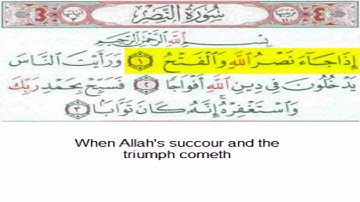 سُورَةُ النَّصْرِ
بِسْمِ اللَّهِ الرَّحْمَٰنِ الرَّحِيمِ
إِذَا جَاءَ نَصْرُ اللَّهِ وَالْفَتْحُ ١ وَرَأَيْتَ النَّاسَ
يَدْخُلُونَ فِي دِينِ اللَّهِ أَفْوَاجًا ٢ فَسَبِّحْ بِحَمْدِ رَبِّكَ
وَاسْتَغْفِرْهُ إِنَّهُ كَانَ تَوَّابًا ٣
When Allah's succour and the
triumph cometh